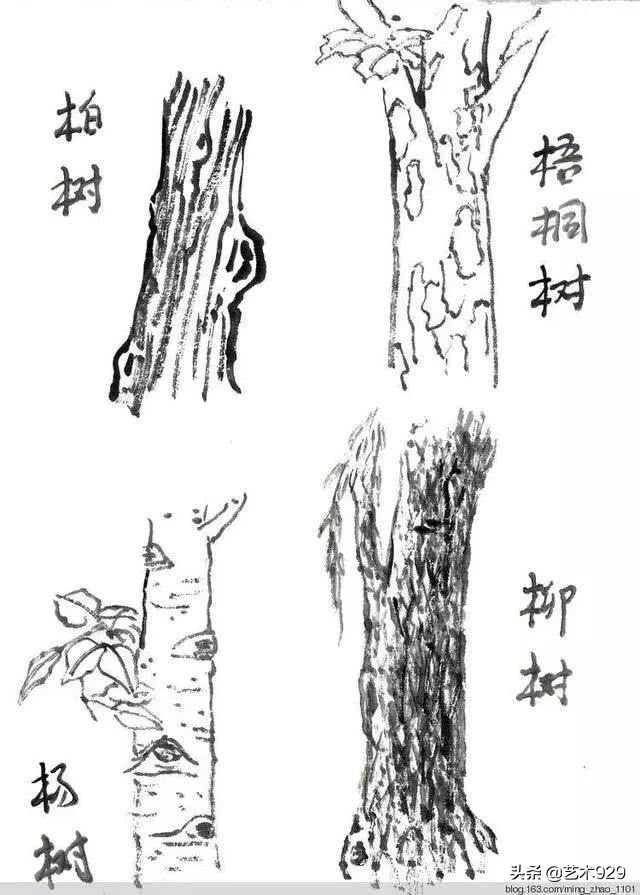 柏树
梧桐树
杨树
柳树
头条 @艺术929
blog.163.com/ming_zhao_1101